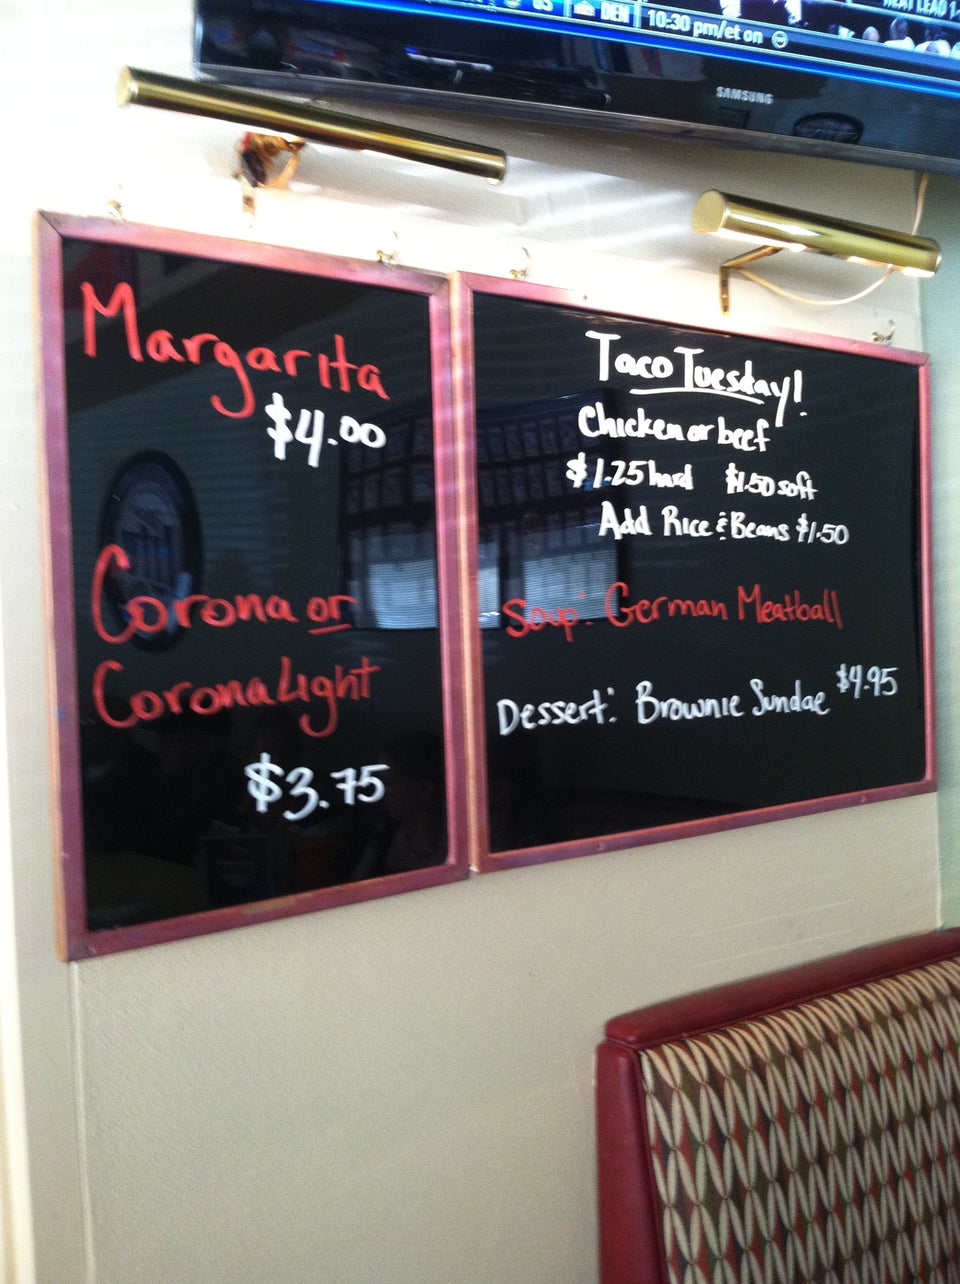 DEN
10:30 pm/et on
SAMSUNG
Margarita
$4.00
Corona or
Corona Light
$3.75
Taco Tuesday!
Chicken or beef
$1.25 hard $1.50 soft
Add Rice & Beans $1.50
Soup: German Meatball
Dessert: Brownie Sundae $4.95